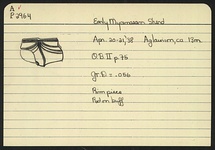 A
P 2964
Early Mycenaean Sherd
Apr. 20-21, '38 Aglaurion, ca. 13m
O.B. II p. 75
Gr. D. = .056
Rim piece
Red on buff